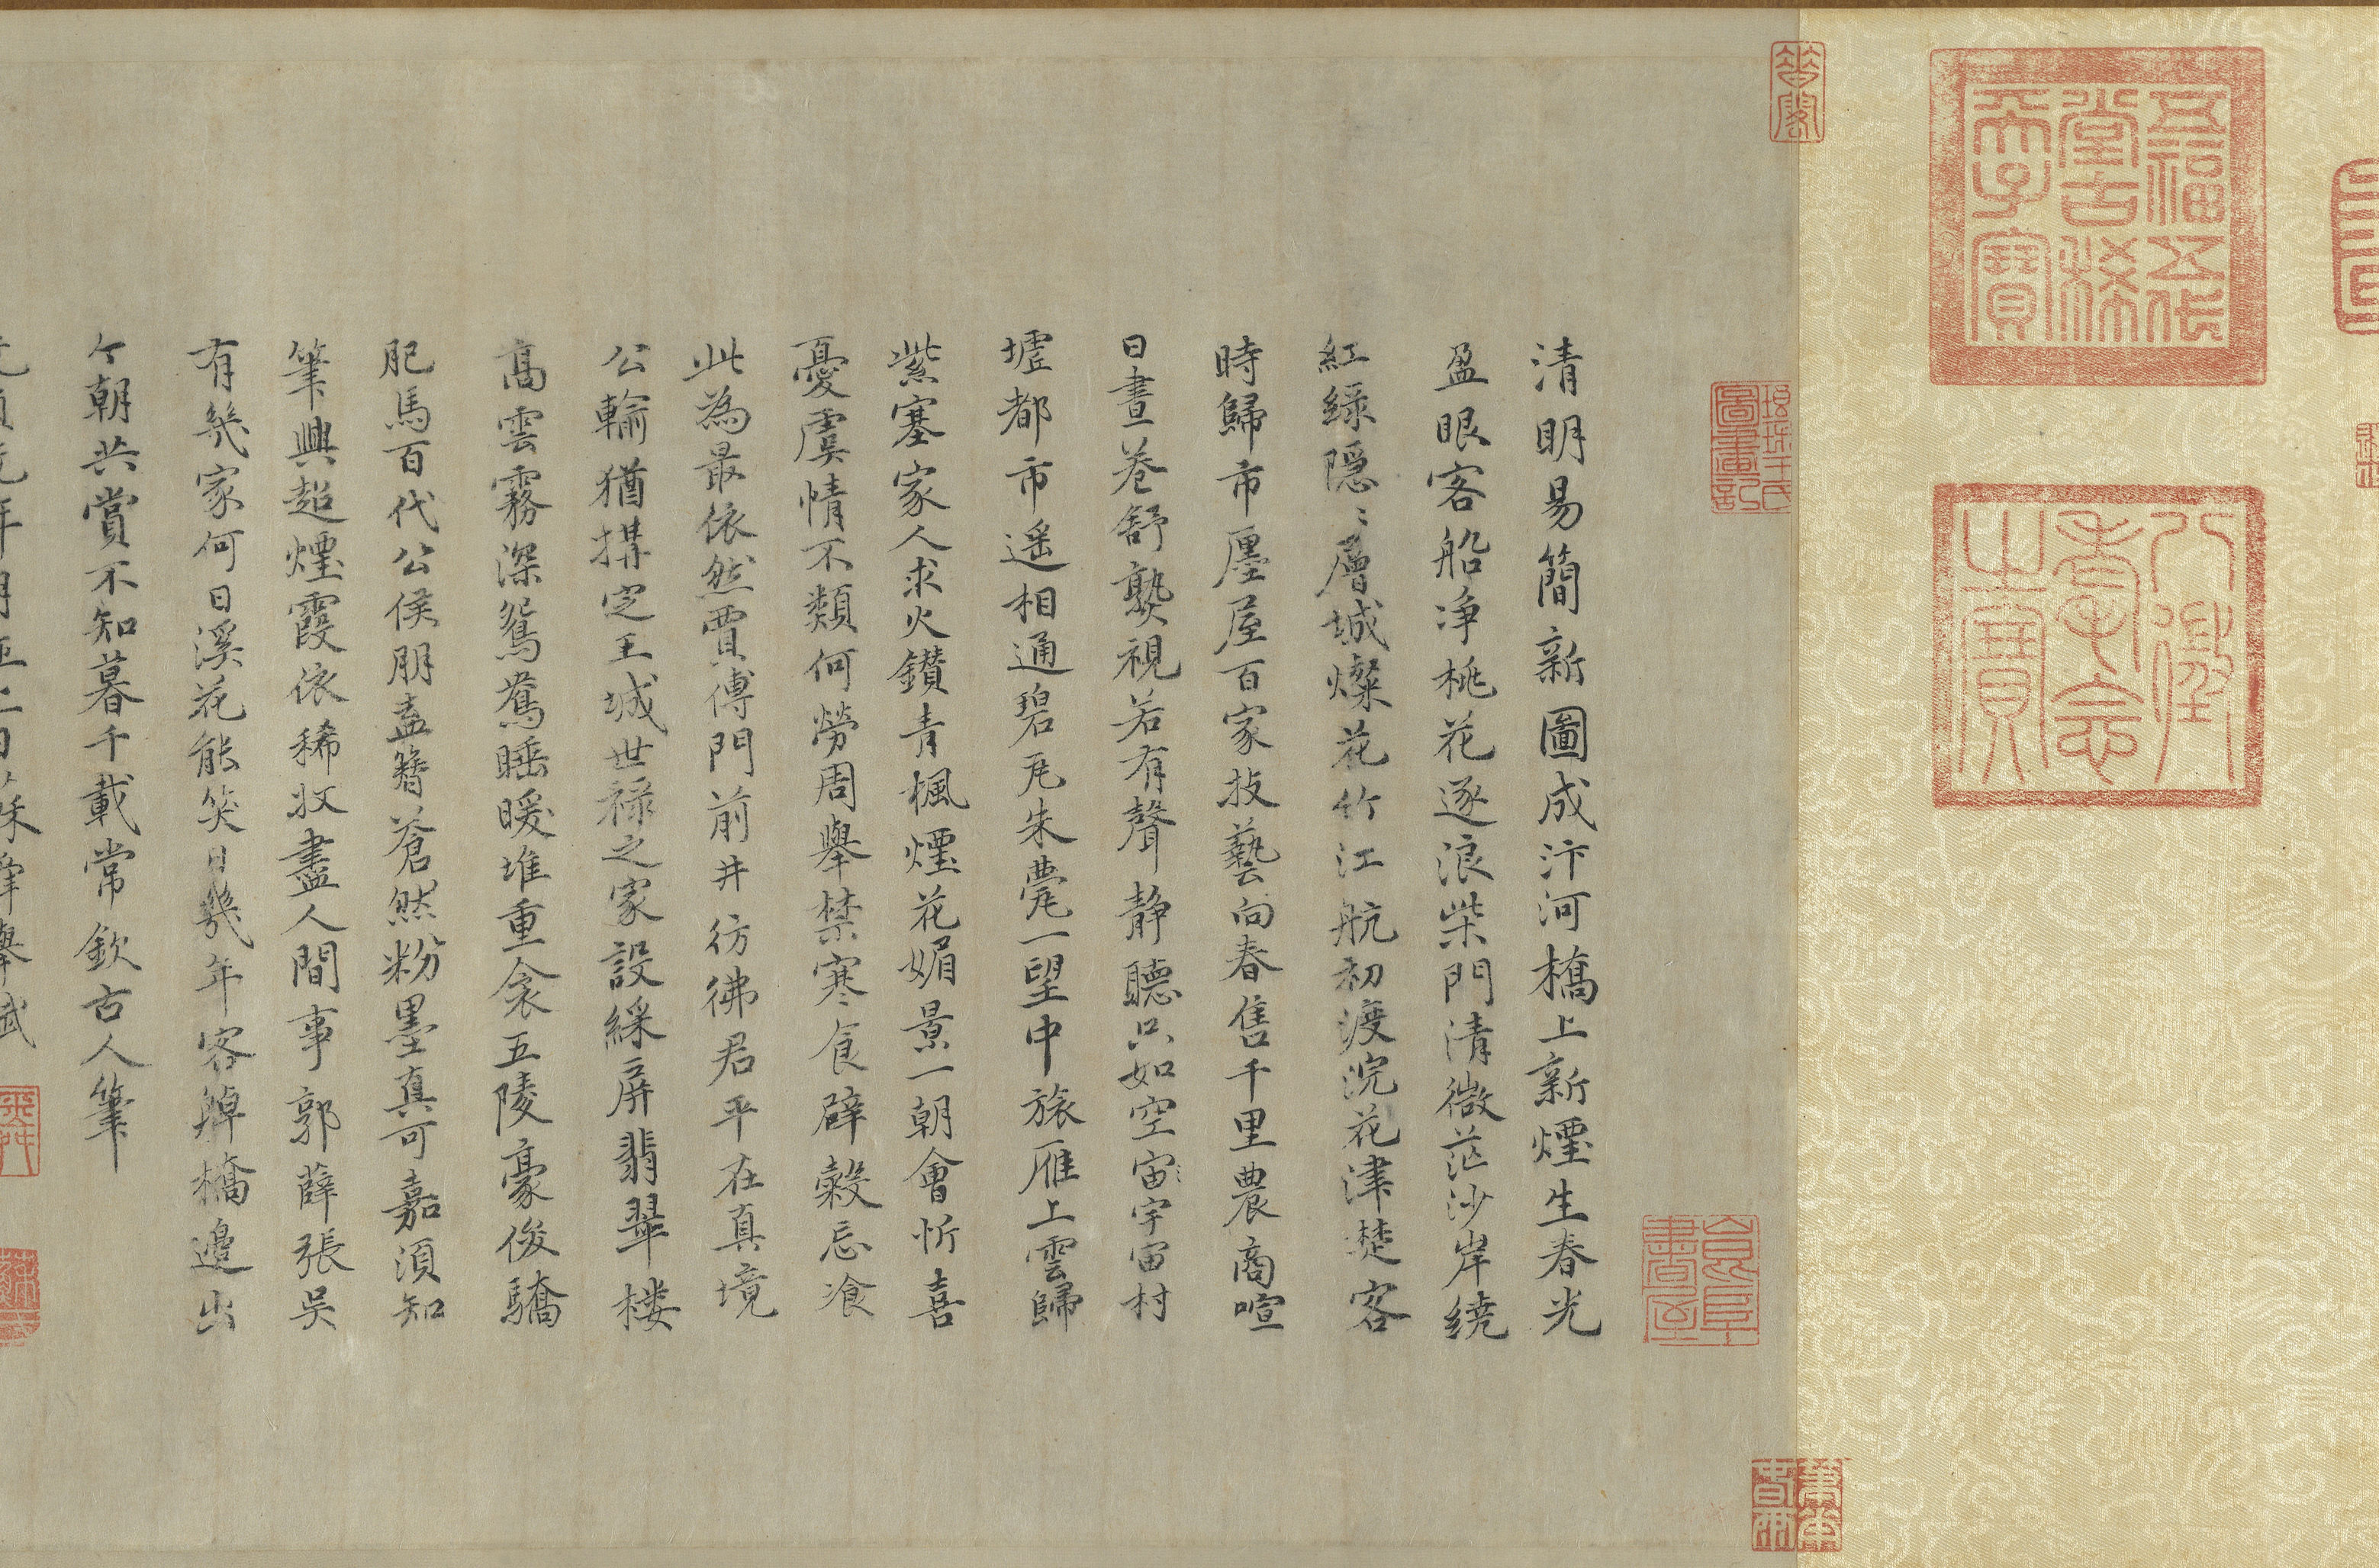 清明易簡新圖成汴河橋上新煙生春光
盈眼客船淨桃花逐浪柴門清微茫沙岸繞
紅綠隱〻層城燦花竹江航初渡浣花津楚客
時歸市廛屋百家技藝向春售千里農商喧
日晝巷舒褻視若有聲靜聽只如空宙〻宇宙村
墟都市遥相通碧瓦朱甍一望中旅雁上雲歸
紫塞家人求火鑽青楓煙花媚景一朝會忻喜
憂虞情不類何勞周舉禁寒食辟穀忘飡
此為最依然賈傅門前井彷彿君平在真境
公輸猶搆定王城世祿之家設綵屏翡翠楼
高雲霧深鴛鴦睡暖堆重衾五陵豪俊驕
肥馬百代公侯朋盍簪蒼然粉墨真可嘉須知
筆興超煙霞依稀收盡人間事郭薛張吳
有幾家何日溪花能笑日幾年客綽橋邊出
今朝共賞不知暮千載常欽古人筆
五福五代
堂古稀
天子寶
八徵
耄念
之寶
琅琊王氏
圖畫記